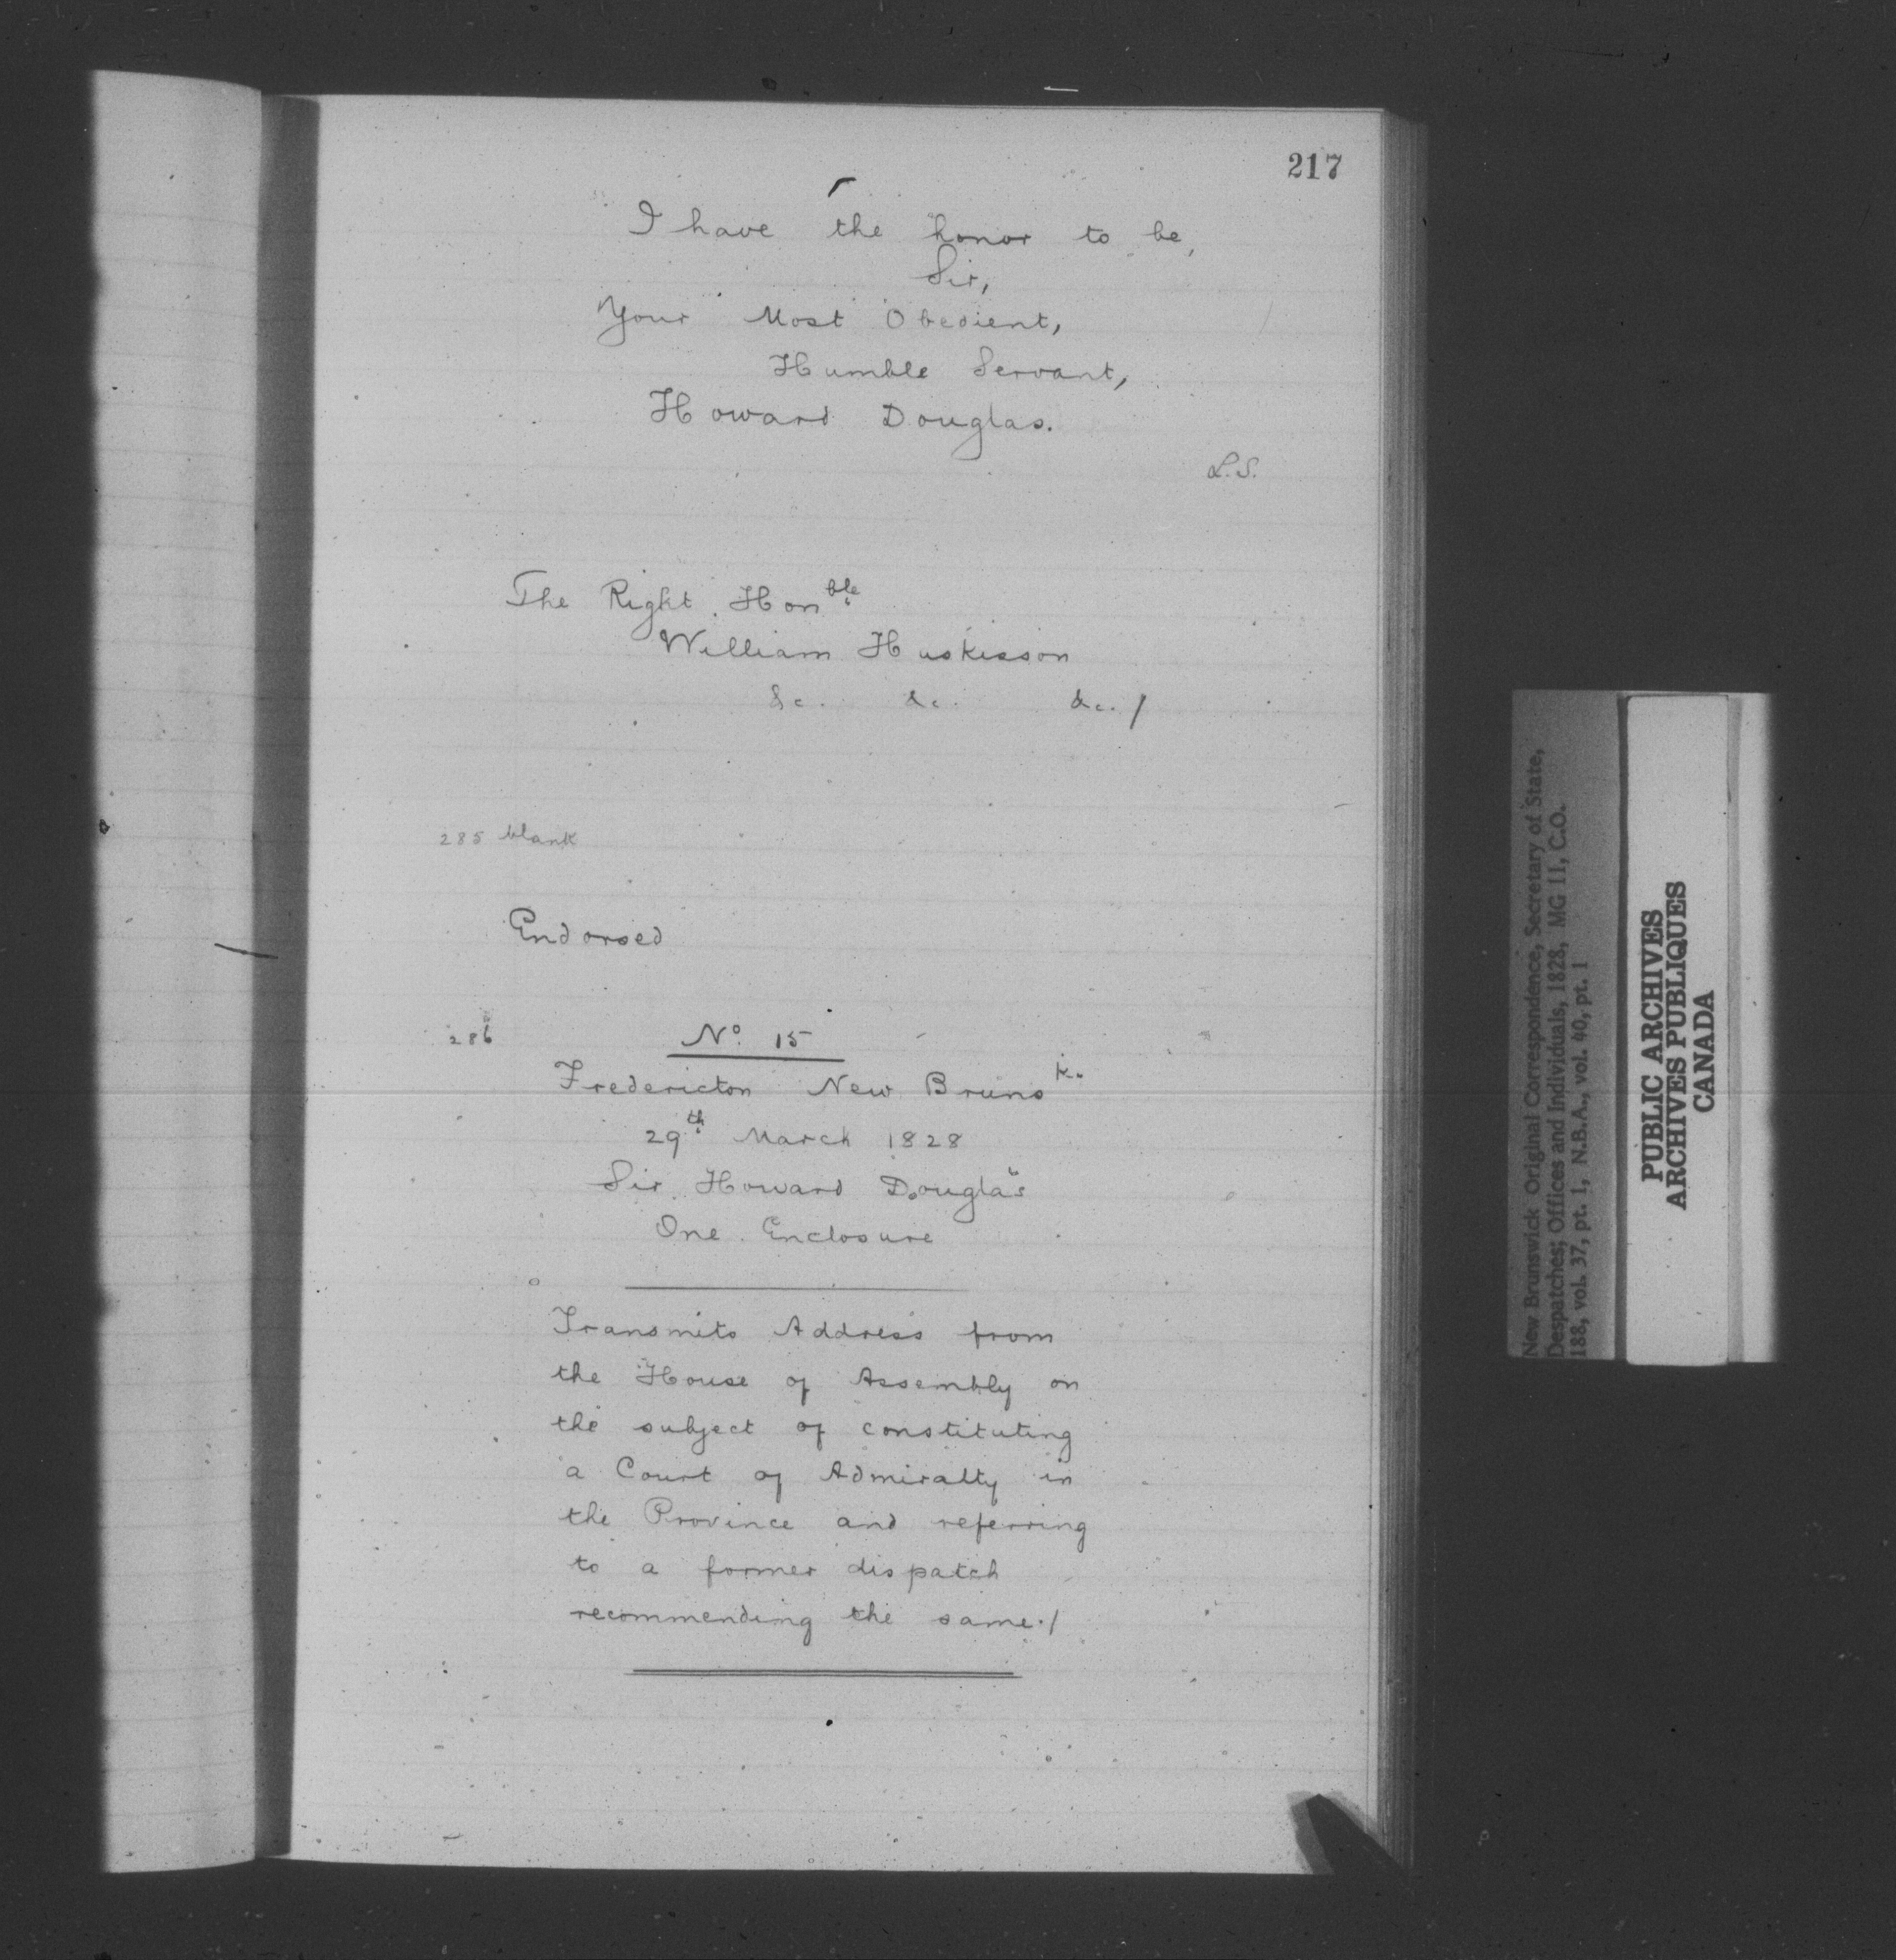 217
I have the honor to be,
Sir,
Your Most Obedient,
Humble Servant,
Howard Douglas.
L.S.
The Right Honble
William Huskisson
&c. &c. &c./
285 blank
Endorsed
286 No. 15
Fredericton New Brunsk.
29th March 1828
Sir Howard Douglas
One Enclosure
Transmits Address from
the House of Assembly on
the subject of constituting
a Court of Admiralty in
the Province and referring
to a former dispatch
recommending the same./
New Brunswick Original Correspondence, Secretary of State,
Despatches; Offices and Individuals, 1828, MG 11, C.O.
188, vol. 37, pt. 1, N.B.A., vol. 40, pt. 1
PUBLIC ARCHIVES
ARCHIVES PUBLIQUES
CANADA